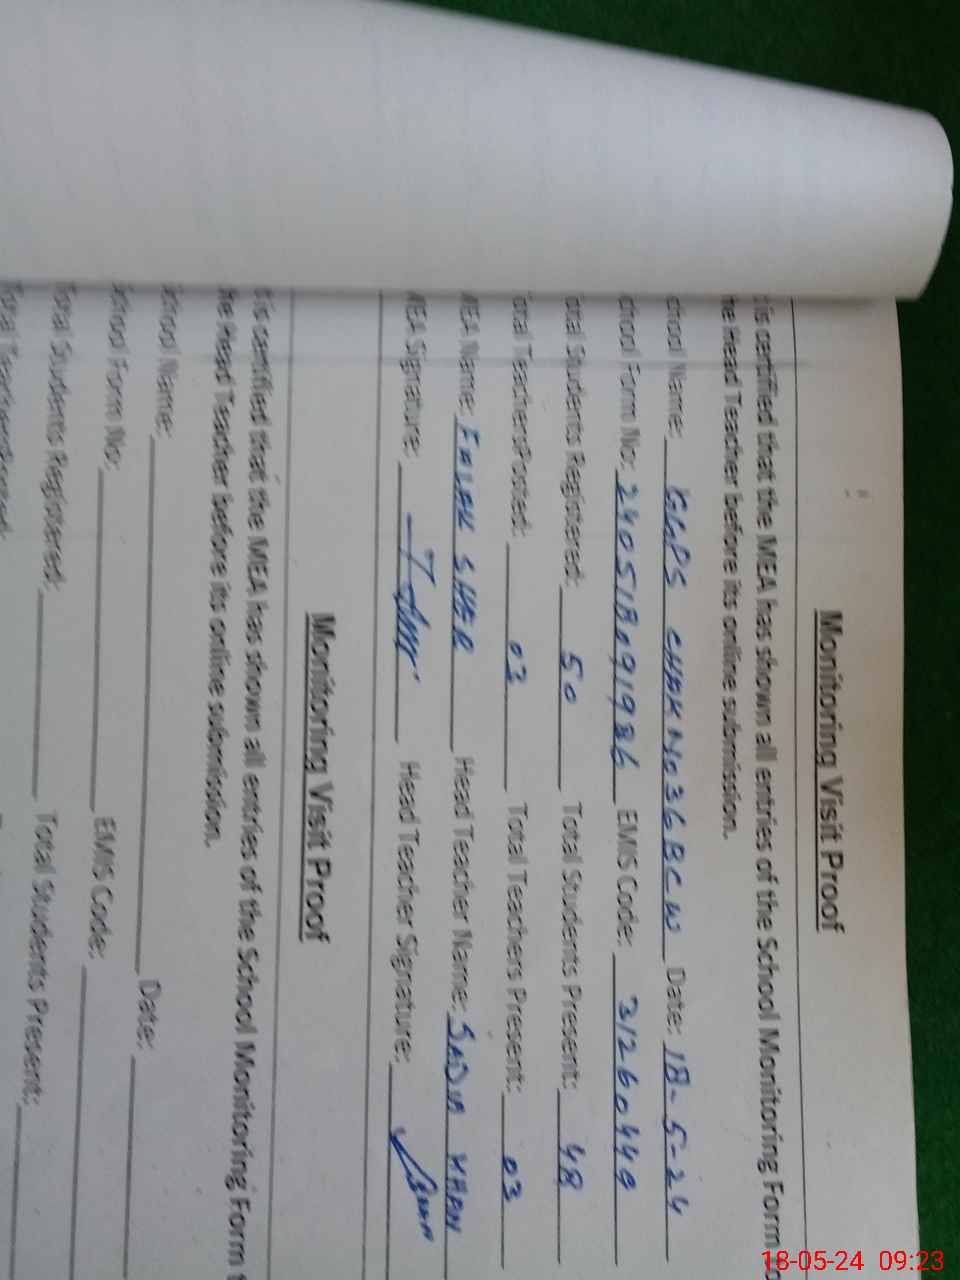 Monitoring Visit Proof
t is certified that the MEA has shown all entries of the School Monitoring Form
he Head Teacher before its online submission.
chool Name: GGPS CHAK NO 36 BC W Date: 18-5-24
chool Form No: 240518091986 EMIS Code: 31260449
otal Students Registered: 50 Total Students Present: 48
otal TeachersPosted: 03 Total Teachers Present: 03
MEA Name: FALAK SHER Head Teacher Name: SADIA KHAN
MEA Signature: Head Teacher Signature:
Monitoring Visit Proof
t is certified that the MEA has shown all entries of the School Monitoring Form
he Head Teacher before its online submission.
chool Name: Date:
chool Form No: EMIS Code:
otal Students Registered: Total Students Present:
18-05-24 09:23